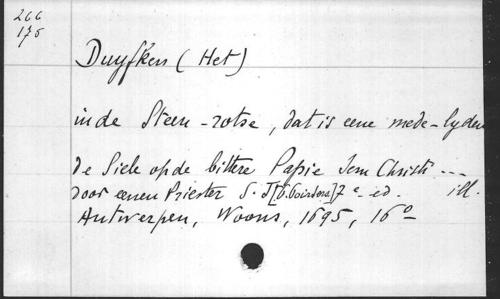 266
175
Duyfkens (Het)
in de Steen-rotse, dat is eene mede-lyden
de Siele op de bittere Passie Jesu Christi ...
door eenen Priester S.J. 7e ed. ill.
Antwerpen, Woons, 1695, 16°